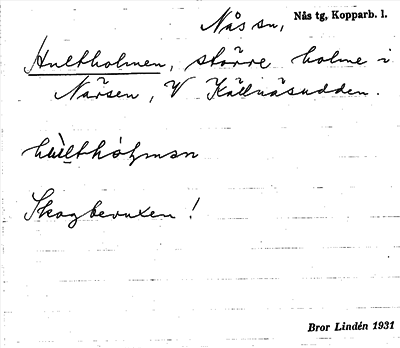 Nås sn, Nås tg, Kopparb. l.
Hultholmen, större holme i
Närsen, V Källnäsudden.
hùlthòlmən
Skogbevuxen!
Bror Lindén 1931